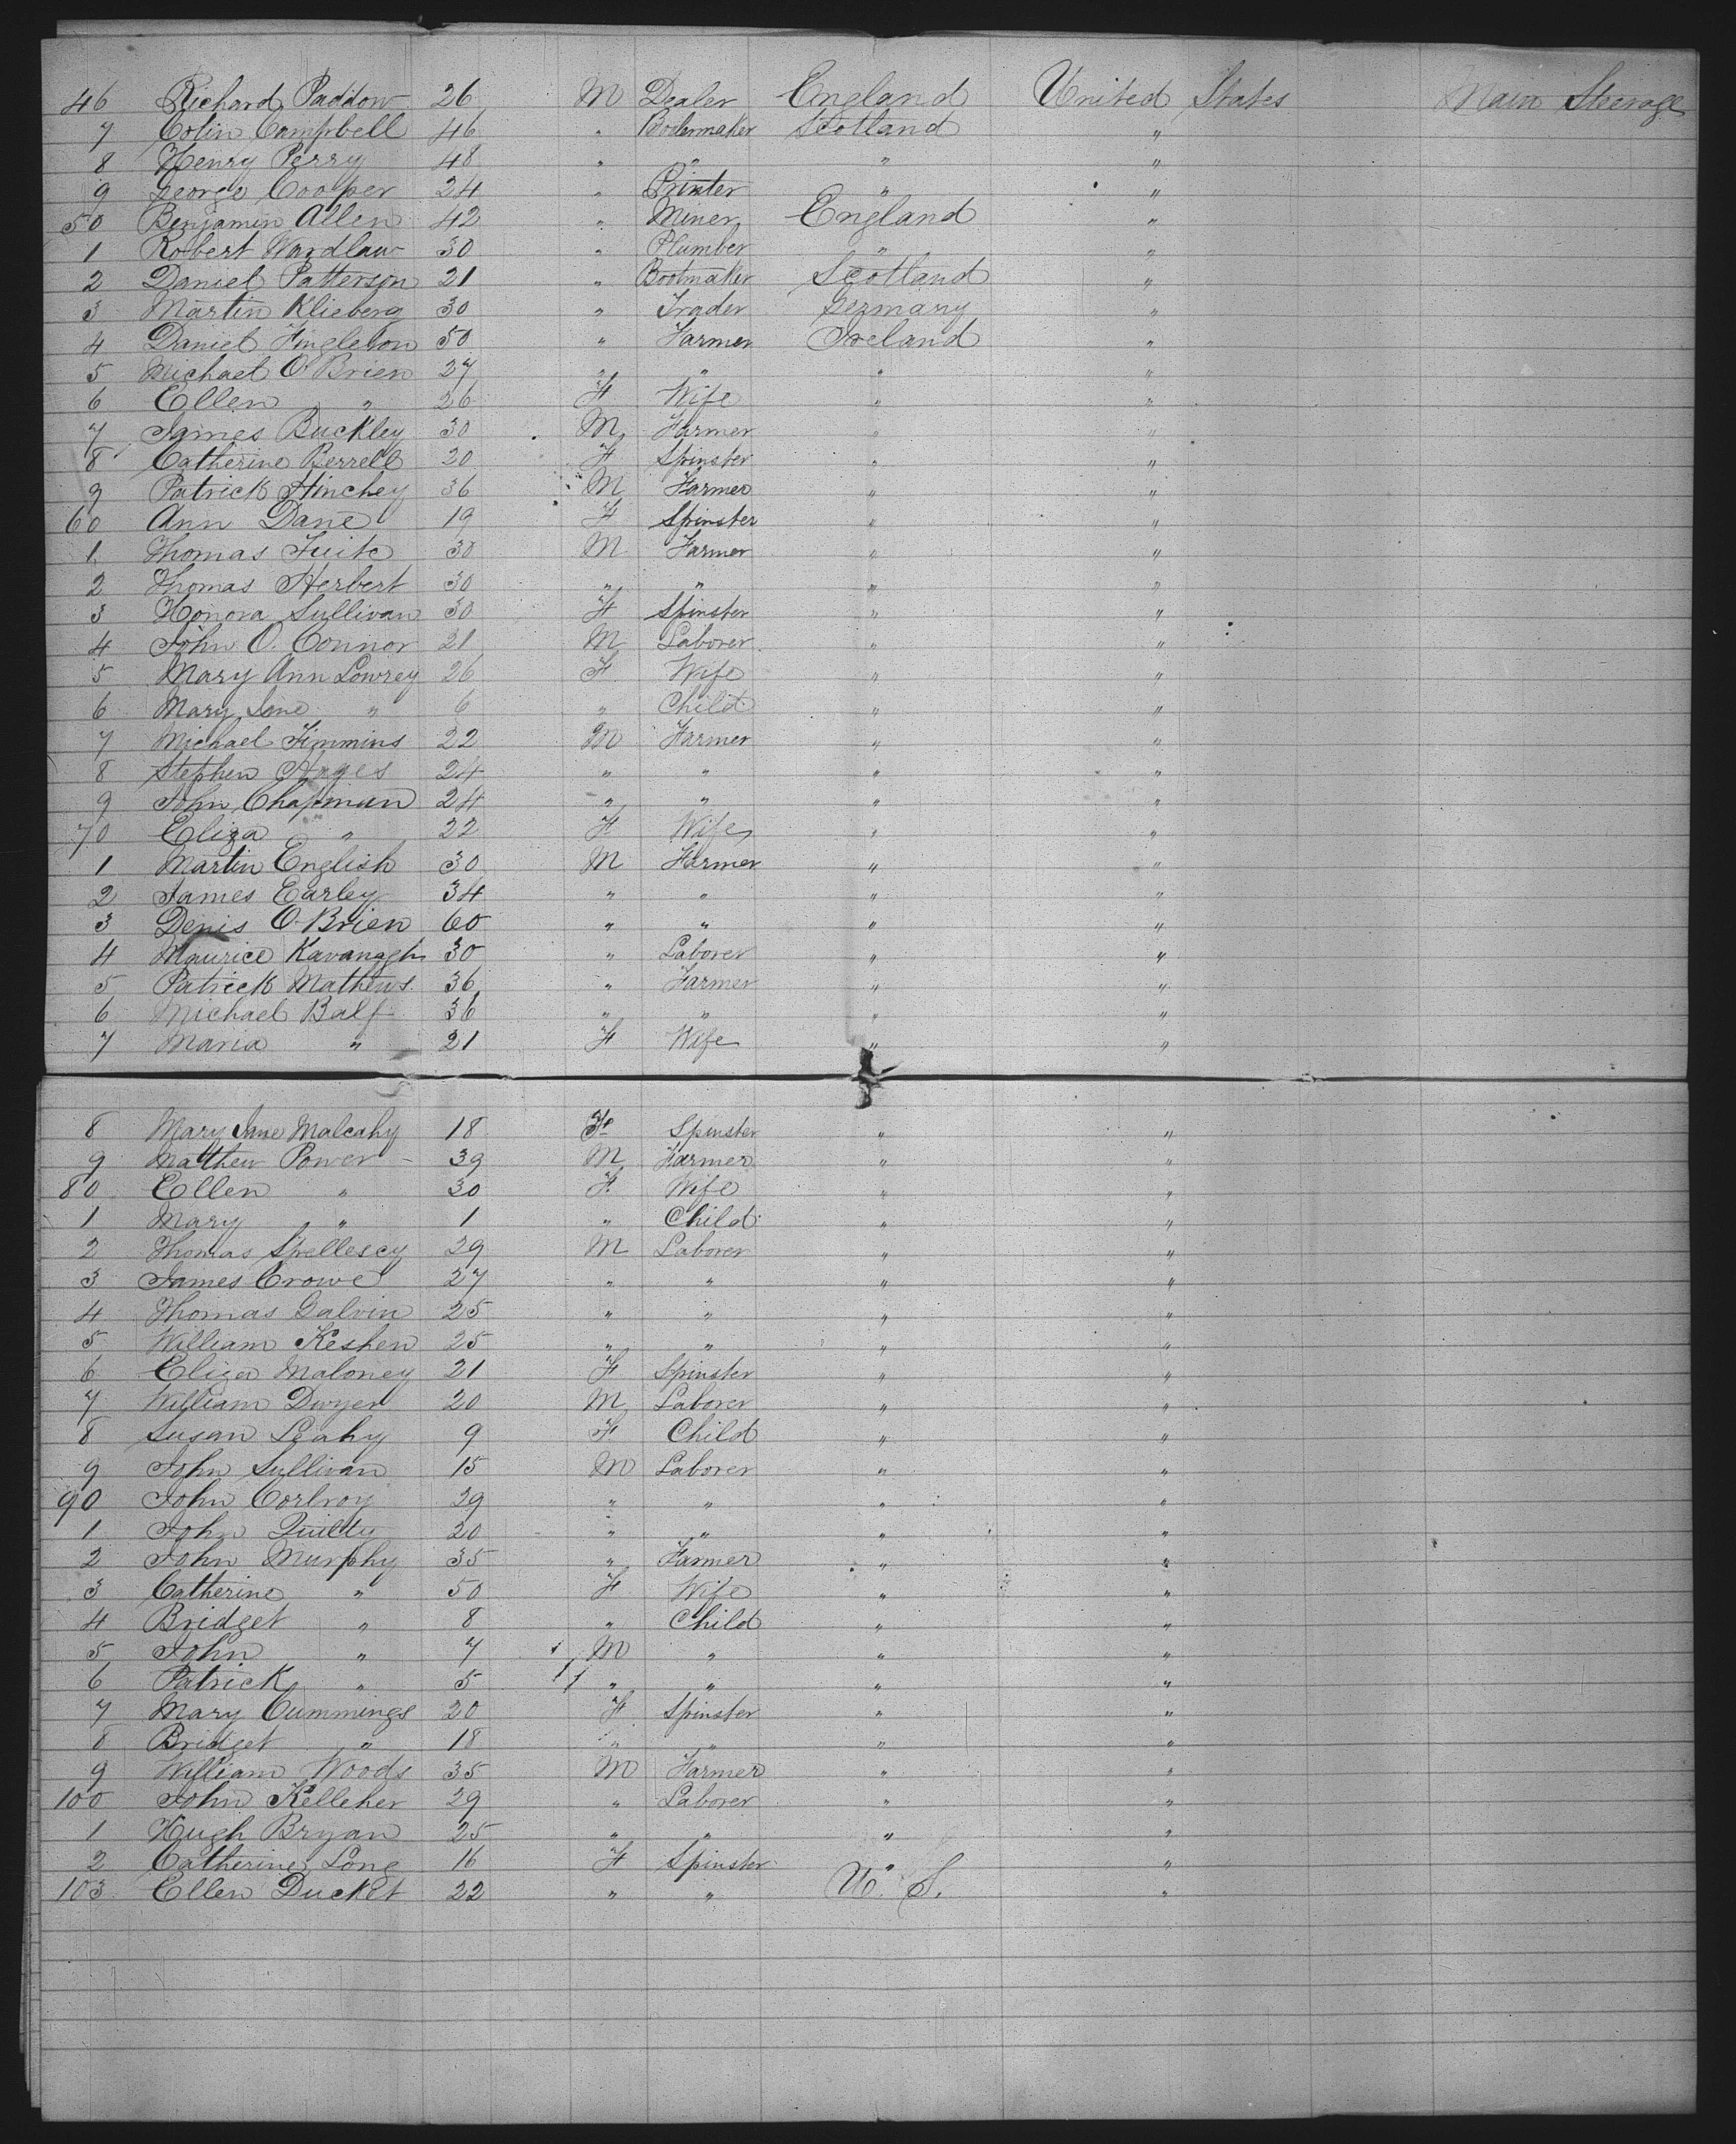 46 Richard Paddow 26 M Dealer England United States Main Steerage
7 Colin Campbell 46 " Boilermaker Scotland "
8 Henry Perry 48 " " " "
9 George Cooper 24 " Printer " "
50 Benjamin Allen 42 " Miner England "
1 Robert Wardlaw 30 " Plumber " "
2 Daniel Patterson 21 " Bootmaker Scotland "
3 Martin Klieberg 30 " Trader Germany "
4 Daniel Fingleton 50 " Farmer Ireland "
5 Michael O'Brien 27 " " " "
6 Ellen " 26 F Wife " "
7 James Buckley 30 M Farmer " "
8 Catherine Berrell 20 F Spinster " "
9 Patrick Hinchey 36 M Farmer " "
60 Ann Dane 19 F Spinster " "
1 Thomas Tuite 30 M Farmer " "
2 Thomas Herbert 30 " " " "
3 Honora Sullivan 30 F Spinster " "
4 John O. Connor 21 M Laborer " "
5 Mary Ann Lowrey 26 F Wife " "
6 Mary Jane " 6 " Child " "
7 Michael Timmins 22 M Farmer " "
8 Stephen Hayes 24 " " " "
9 John Chapman 24 " " " "
70 Eliza " 22 F Wife " "
1 Martin English 30 M Farmer " "
2 James Earley 34 " " " "
3 Denis O'Brien 60 " " " "
4 Maurice Kavanagh 30 " Laborer " "
5 Patrick Mathews 36 " Farmer " "
6 Michael Balf 36 " " " "
7 Maria " 21 F Wife " "
8 Mary Jane Malcahy 18 F Spinster " "
9 Matthew Power 39 M Farmer " "
80 Ellen " 30 F Wife " "
1 Mary " 1 " Child " "
2 Thomas Spellescy 29 M Laborer " "
3 James Crowe 27 " " " "
4 Thomas Galvin 25 " " " "
5 William Keshen 25 " " " "
6 Eliza Maloney 21 F Spinster " "
7 William Dwyer 20 M Laborer " "
8 Susan Leahy 9 F Child " "
9 John Sullivan 15 M Laborer " "
90 John 29 " " " "
1 John Quilty 20 " " " "
2 John Murphy 35 " Farmer " "
3 Catherine " 50 F Wife " "
4 Bridget " 8 " Child " "
5 John " 7 M " " "
6 Patrick " 5 " " " "
7 Mary Cummings 20 F Spinster " "
8 Bridget " 18 " " " "
9 William Woods 35 M Farmer " "
100 John Kelleher 29 " Laborer " "
1 Hugh Bryan 25 " " " "
2 Catherine Long 16 F Spinster " "
103 Ellen Ducket 22 " " U. S. "